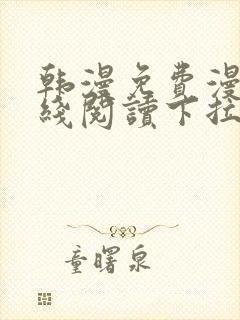 韩漫免费漫
线阅读下拉
童曙泉